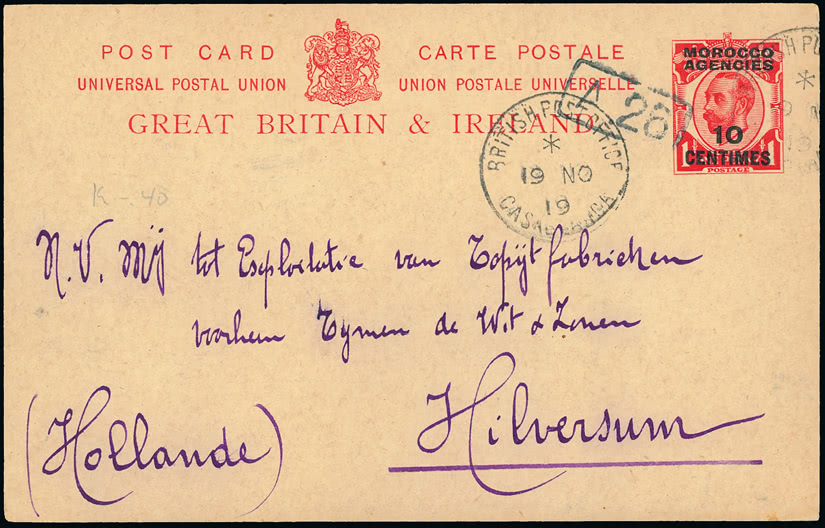 POST CARD CARTE POSTALE
UNIVERSAL POSTAL UNION UNION POSTALE UNIVERSELLE
GREAT BRITAIN & IRELAND
MOROCCO
AGENCIES
10
CENTIMES
POSTAGE
BRITISH POST OFFICE
*
19 NO
19
CASABLANCA
A 28
K - . 40
N.V. Mij tot Exploitatie van Tapijtfabrieken
voorheen Tymen de Wit & Zonen
(Hollande) Hilversum